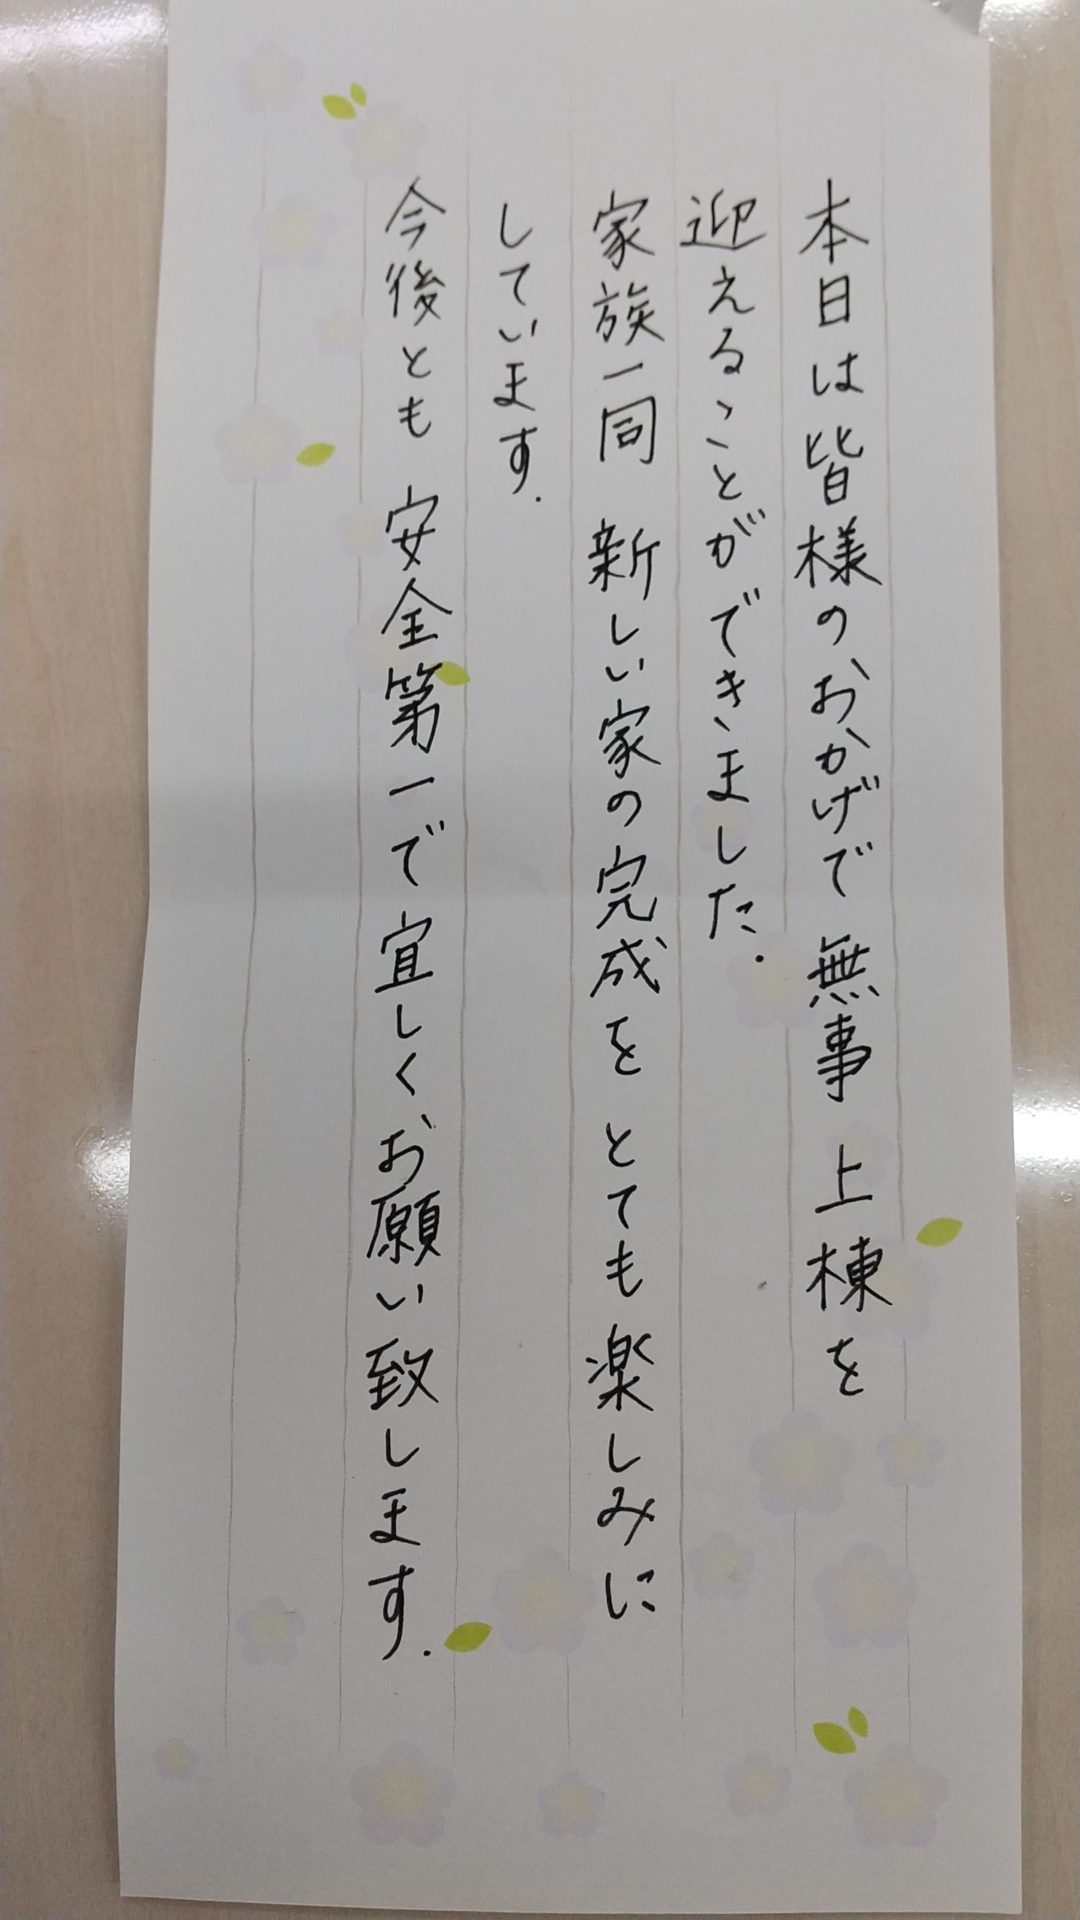 本日は皆様のおかげで無事 上棟を
迎えることができました.
家族一同 新しい家の完成を とても楽しみに
しています.
今後とも 安全第一で宜しくお願い致します.